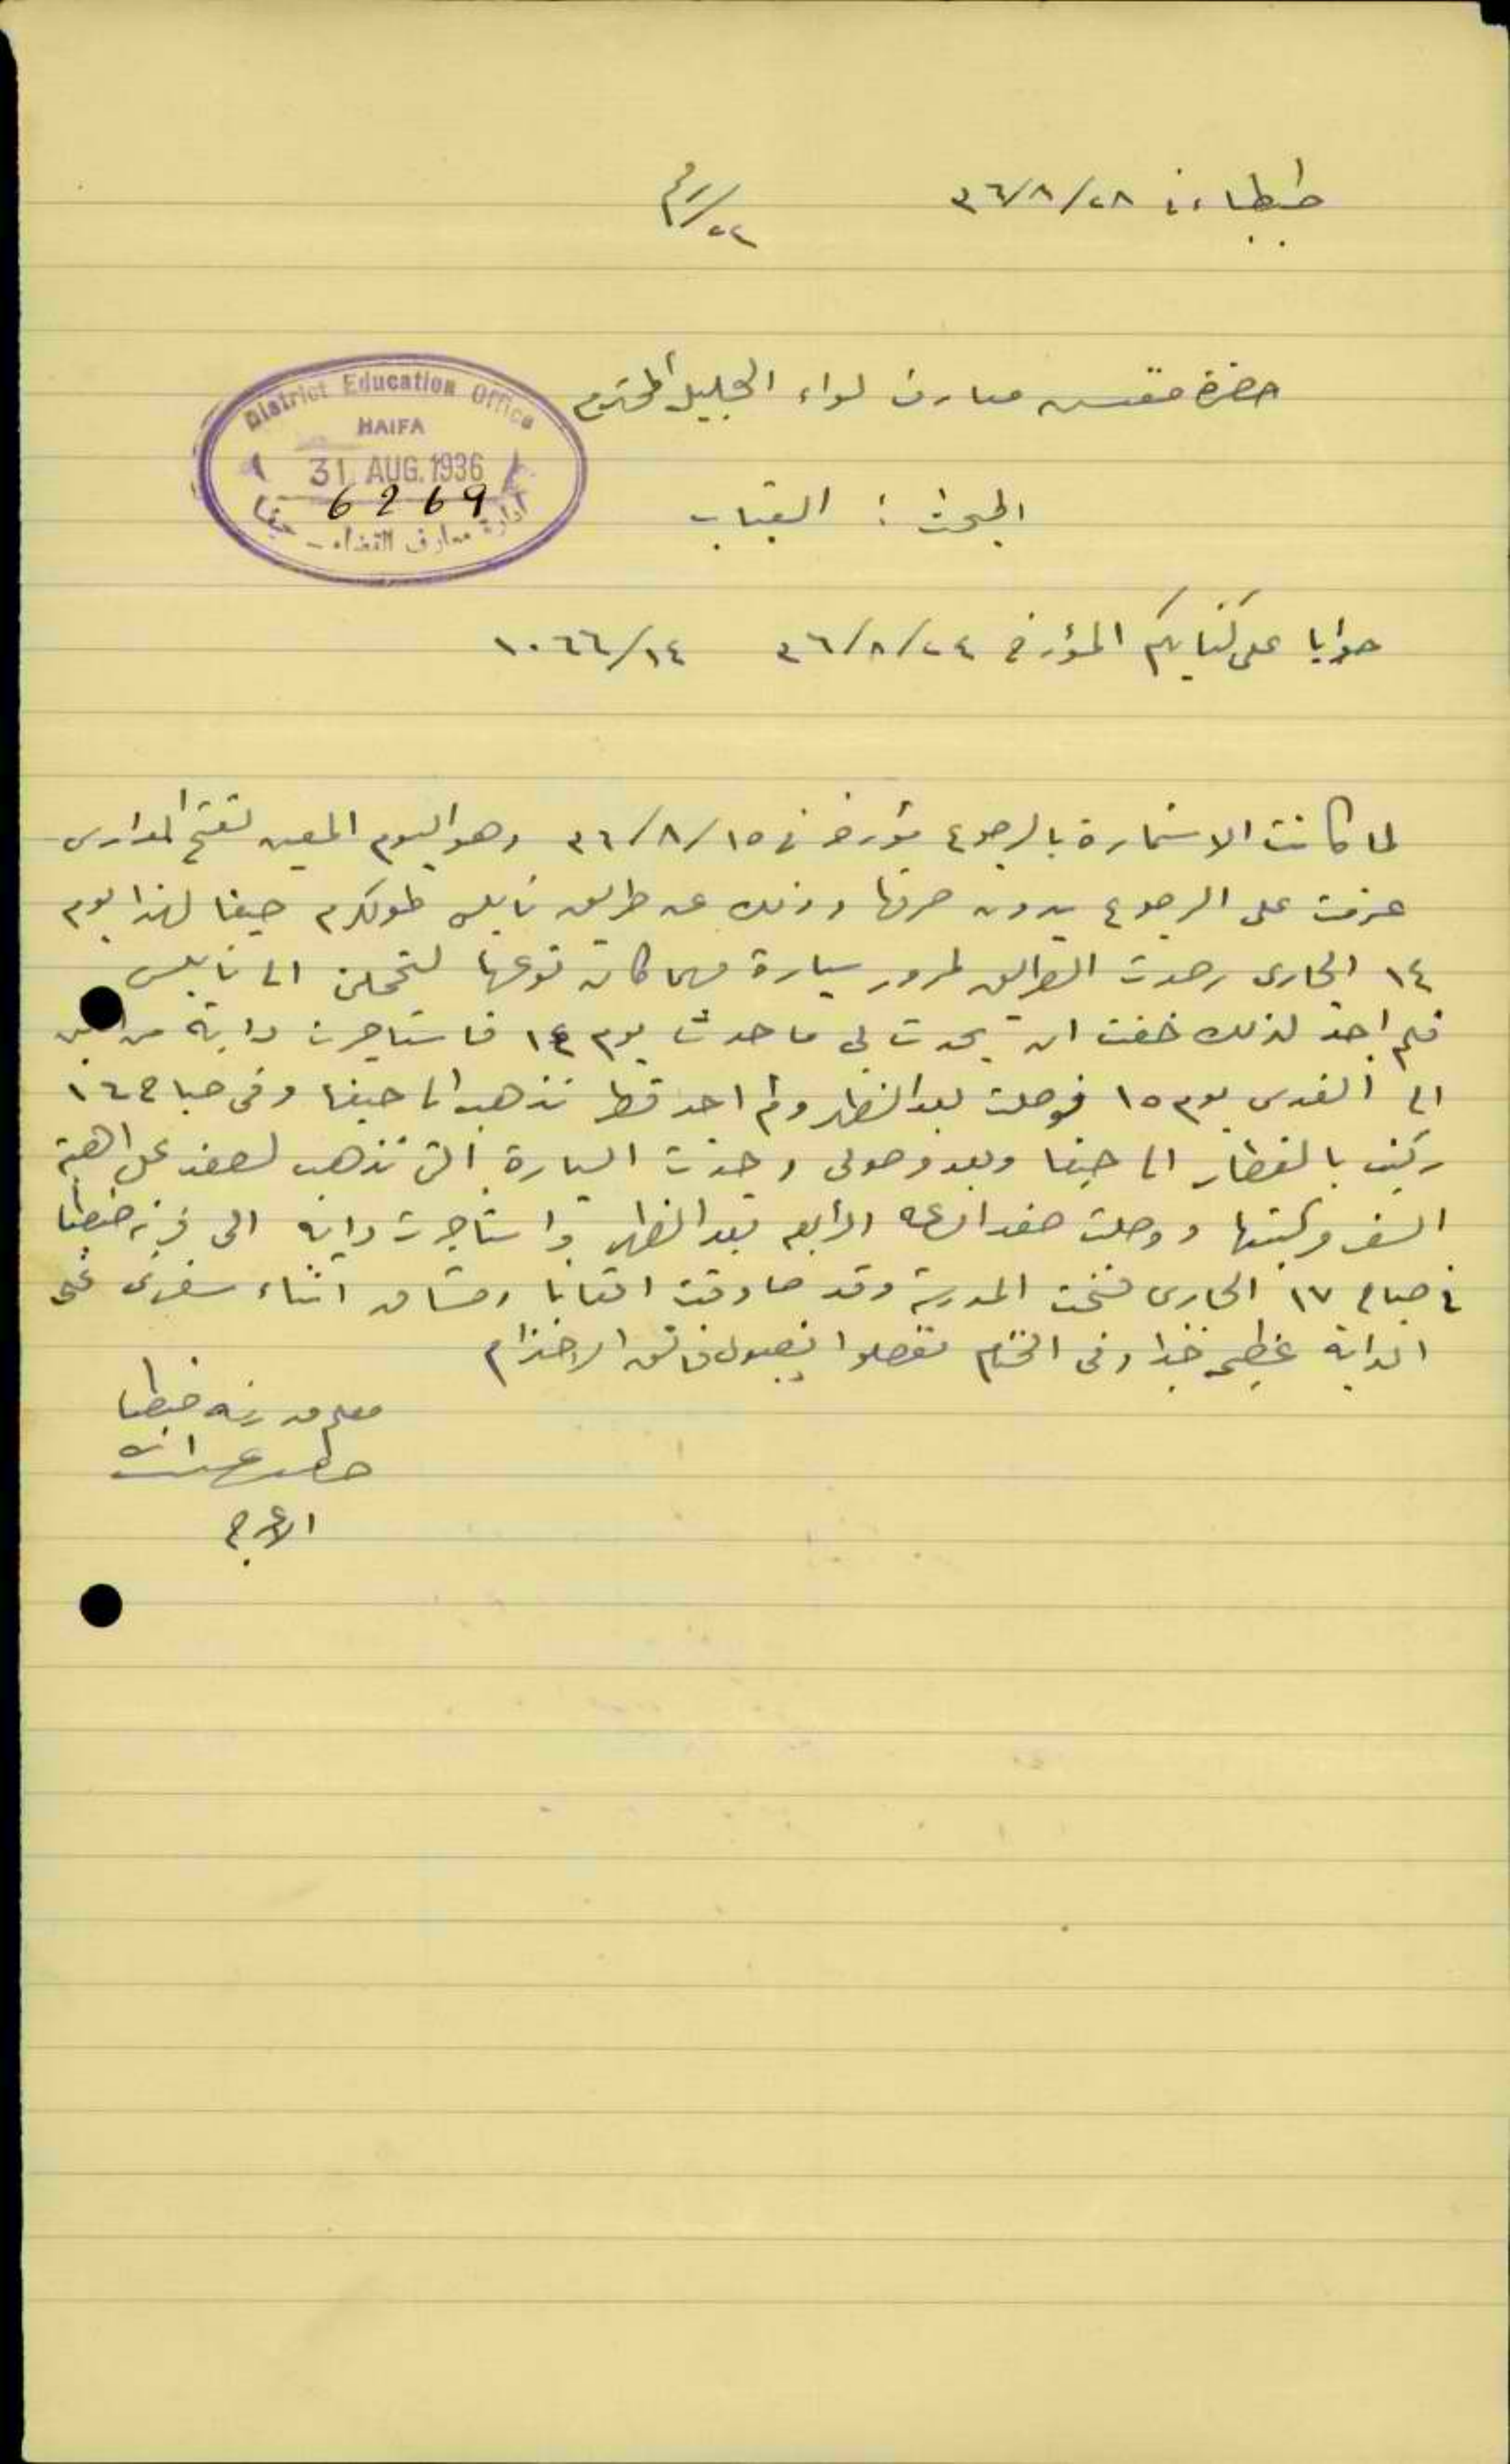 ضيطبا، في ٢٨/٨/٣٦
رقم/٢٢
حضرة مفتش معارف لواء الجليل المحترم
District Education Office
HAIFA
31 AUG. 1936
6269
ادارة معارف القضاء - حيفا
المبحث : الغياب
جوابا على كتابكم المؤرخ ٢٤/٨/٣٦ ١٠٦٦/١٤
لما كانت الاستمارة بالرجوع مؤرخة في ١٥/٨/٣٦ وهو اليوم المعين لفتح المدارس
عزمت على الرجوع بدون صرفها وذلك عن طريق نابلس طولكرم حيفا لهذا يوم
١٤ الجاري رصدت الطرايق لمرور سيارة مهما كان نوعها لتحملني الى نابلس
فلم اجد لذلك خفت ان يحدث لي ما حدث يوم ١٤ فاستاجرت دابة من
الى القدس يوم ١٥ فوصلت بعد الظهر ولم اجد قطر تذهب الى حيفا وفي صباح ١٦
ركبت بالقطار الى حيفا وبعد وصولي وجدت السيارة التي تذهب لصفد على اهبة
السفر فركبتها ووصلت صفد الساعة الرابعة بعد الظهر واستاجرت دابة الى قرية ضيطبا
في صباح ١٧ الجاري فتحت المدرسة وقد صادفت اتعابا ومشاق اثناء سفري على
الدابة عظيمة جدا وفي الختام تفضلوا بقبول فائق الاحترام
معلم مدرسة ضيطبا
عبد الله
الاعرج